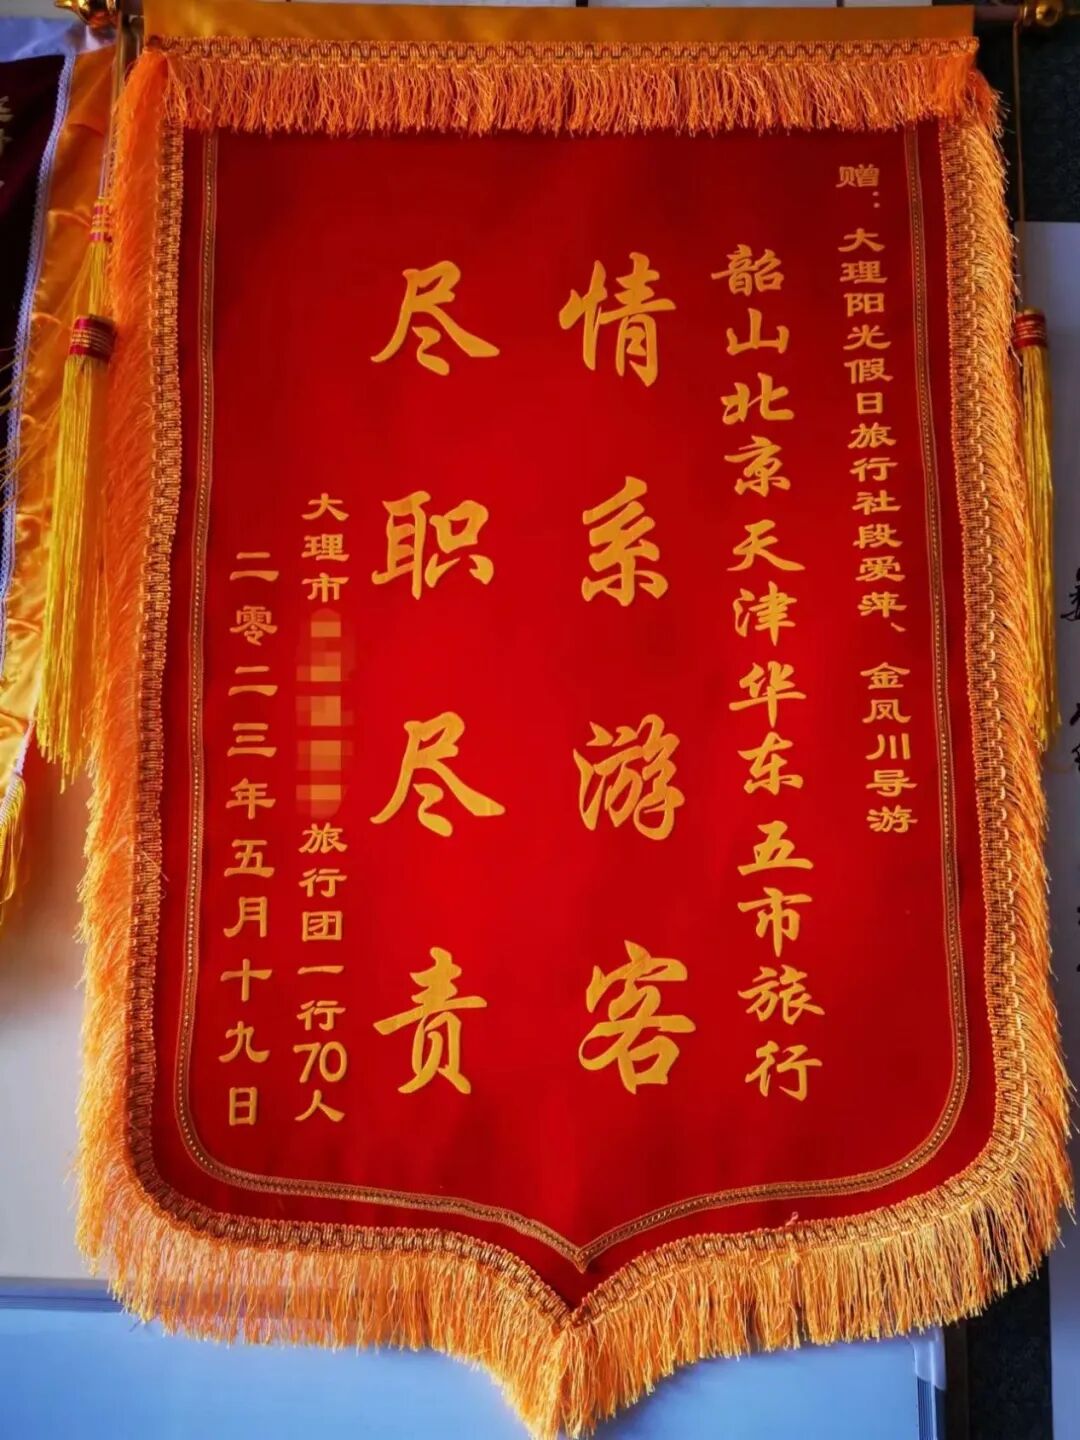 赠：大理阳光假日旅行社段爱萍、金凤川导游
韶山北京天津华东五市旅行
情系游客
尽职尽责
大理市
旅行团一行70人
二零二三年五月十九日